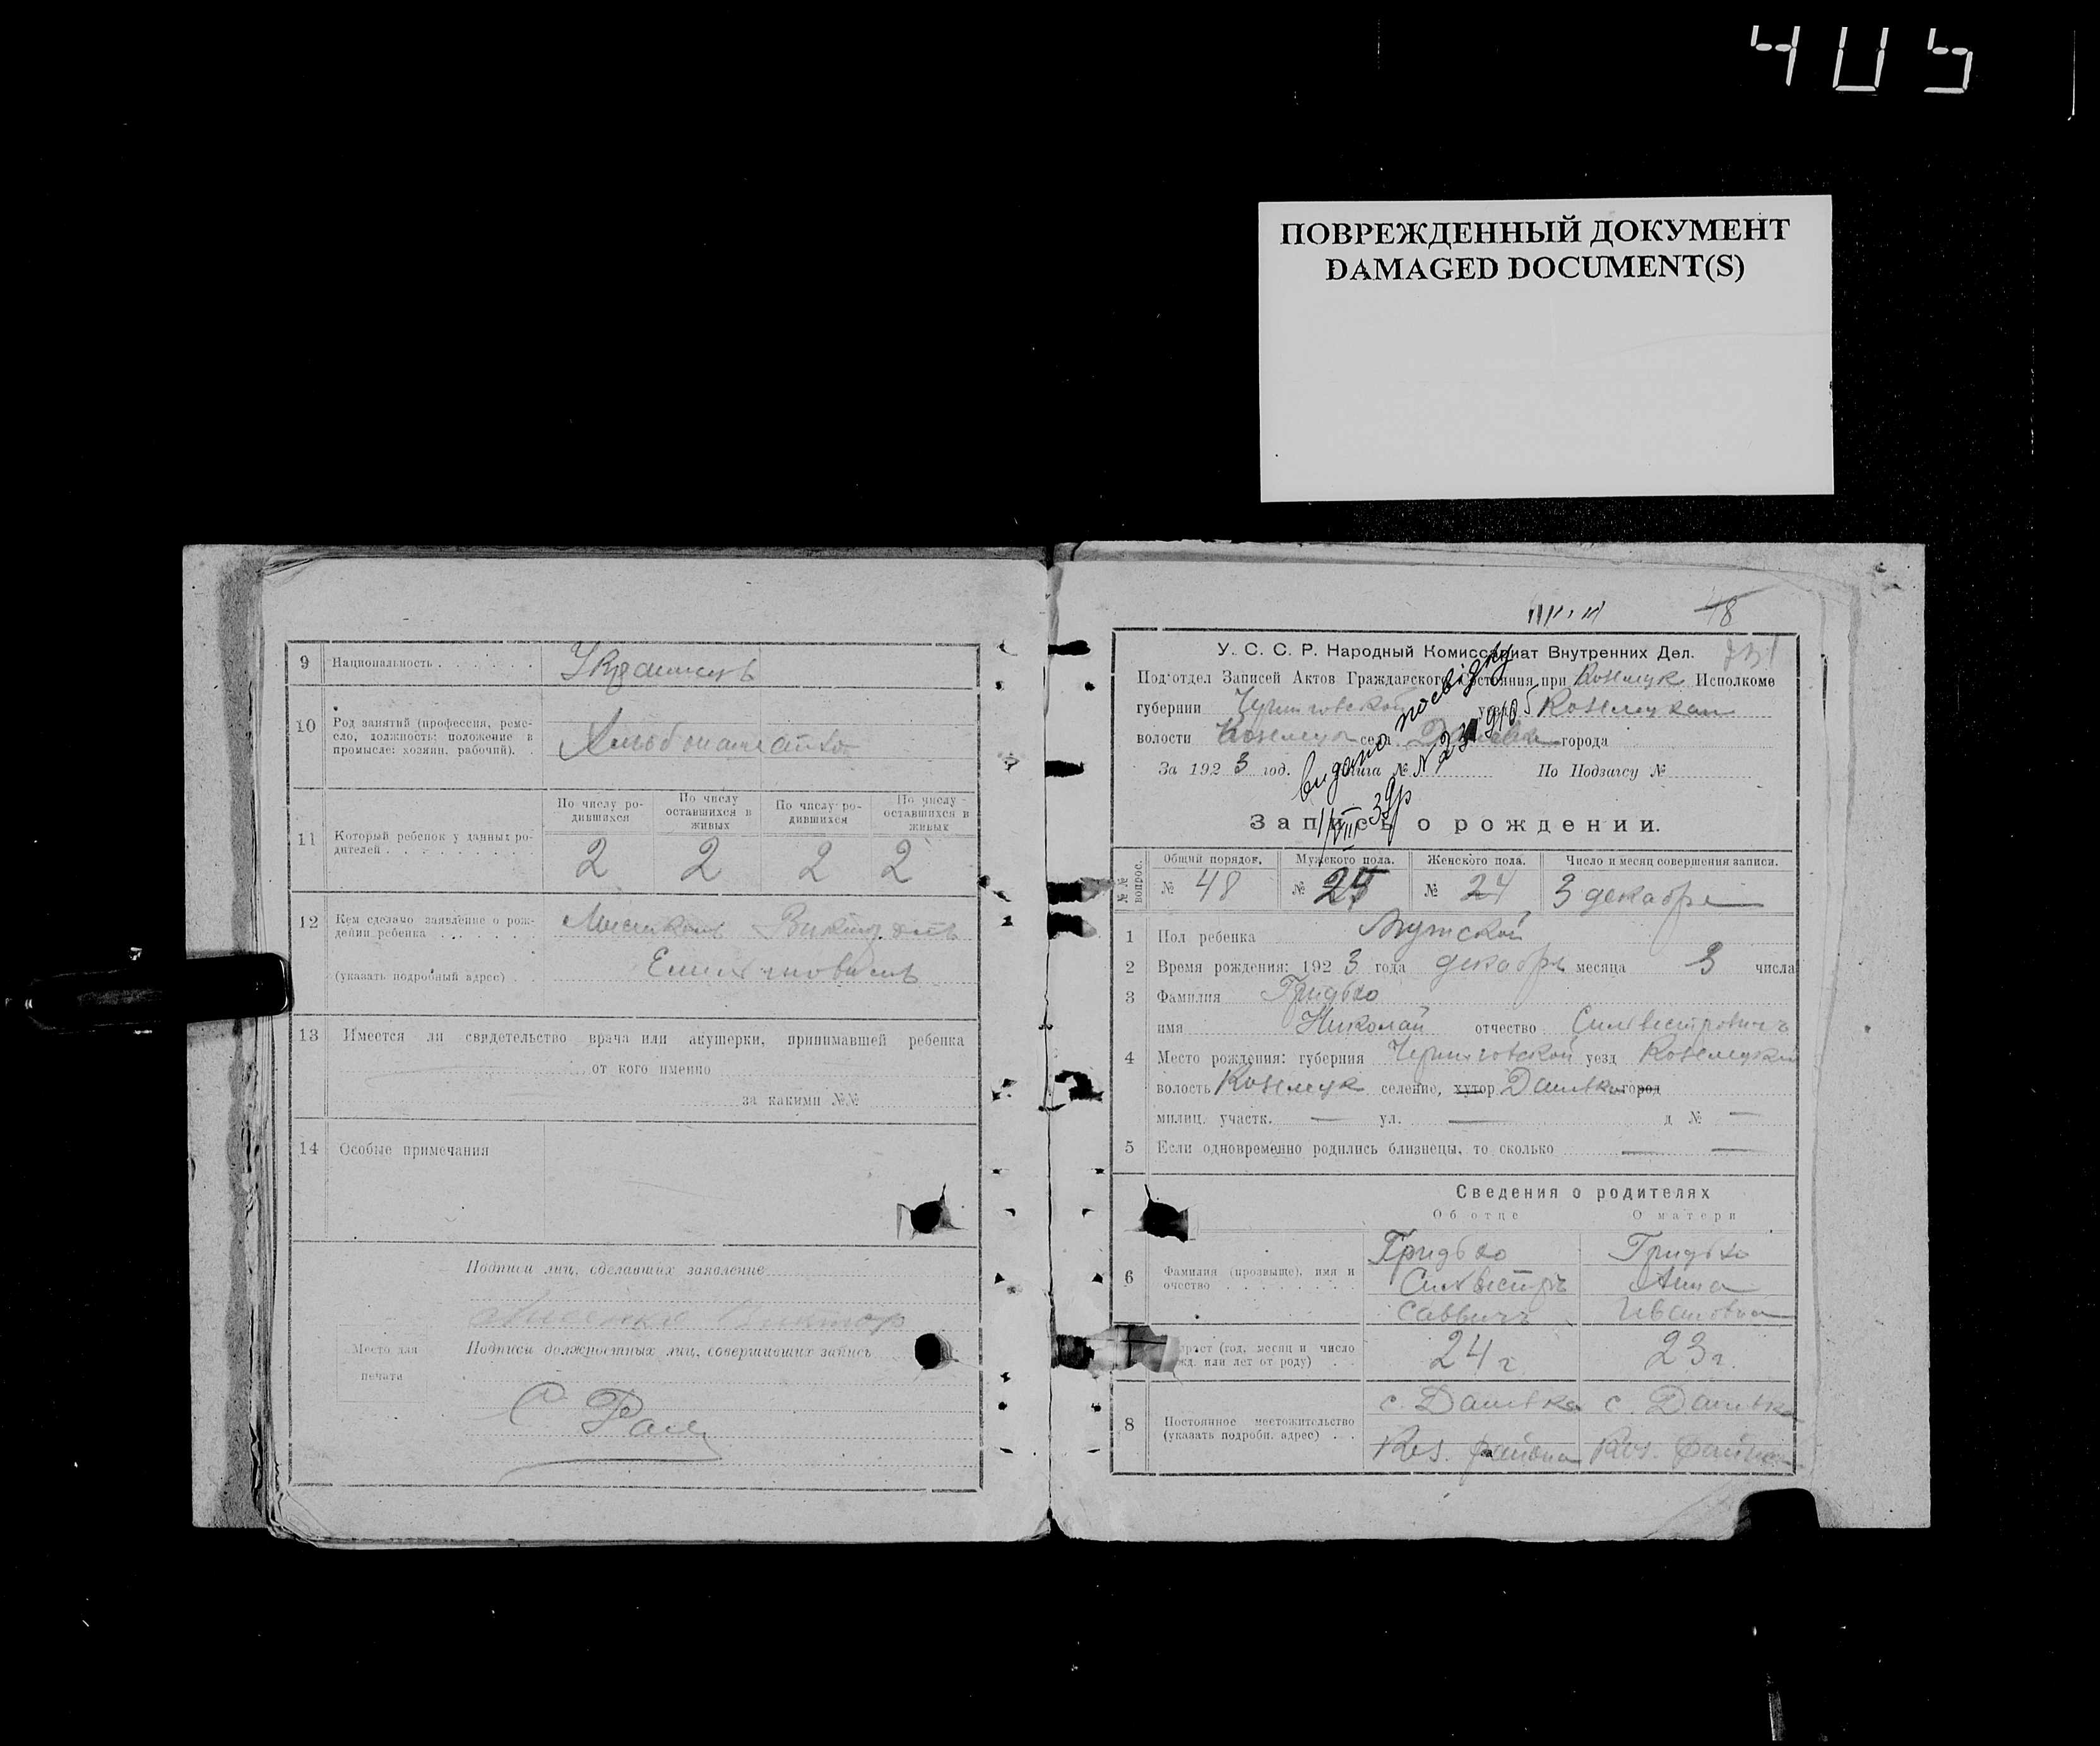 405
ПОВРЕЖДЕННЫЙ ДОКУМЕНТ
DAMAGED DOCUMENT(S)
9 Национальность
10 Род занятий (профессия, реме-
сло, должность: положение в
промысле: хозяин. рабочий).
Хлебопашество
11 Который ребенок у данных ро-
дителей
По числу ро-
дившихся
По числу
оставшихся в
живых
По числу ро-
дившихся
По числу
оставшихся в
живых
2 2 2 2
12 Кем сделано заявление о рож-
дении ребенка
(указать подробный адрес)
13 Имеется ли свидетельство врача или акушерки, принимавшей ребенка
от кого именно
за какими №№
14 Особые примечания
Подписи лиц, сделавших заявление
Виктор
Место для
печати
Подписи должностных лиц, совершивших запись
48
У. С. С. Р. Народный Комиссариат Внутренних Дел.
Под'отдел Записей Актов Гражданского Состояния при Козелецк Исполкоме
губернии Черниговской уезд Козелецкий
волости Козелецк села Даневка города
За 1923 год. Книга № По Подзагсу №
видано посвідку
Запись о рождении.
№№ вопрос.
Общий порядок. Мужского пола. Женского пола. Число и месяц совершения записи.
№ 48 № № 24 3 декабря
1 Пол ребенка Мужской
2 Время рождения: 1923 года декабрь месяца 3 числа
3 Фамилия Гридько
имя Николай отчество Сильвестрович
4 Место рождения: губерния Черниговской уезд Козелецкий
волость Козелецк селение, хутор Даневка город
милиц. участк. — ул. — д № —
5 Если одновременно родились близнецы, то сколько — —
Сведения о родителях
Об отце О матери
6 Фамилия (прозвище), имя и
очество
Гридько Гридько
Сильвестръ Анна
Саввичъ Ивановна
раст (год, месяц и число
жд. или лет от роду)
24 г. 23 г.
8 Постоянное местожительство
(указать подробн. адрес)
с. Даневка с. Даневка
Коз. района Коз. района